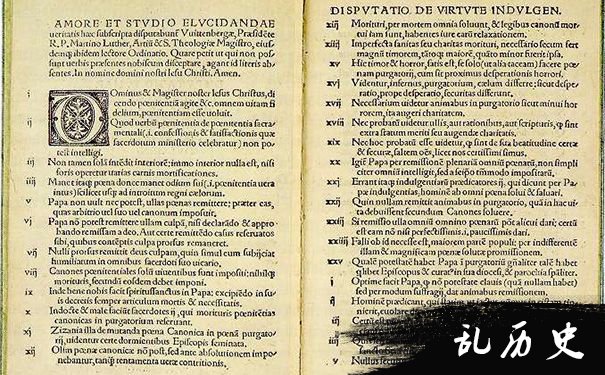 AMORE ET STUDIO ELUCIDANDAE
ueritatis hæc subscripta disputabunť Vuittenbergæ, Præsidẽte
R. P. Martino Luther, Artiũ & S. Theologiæ Magistro, eius-
dem ibidem lectore Ordinario. Quare petit ut qui non pos-
sunt uerbis præsentes nobiscum disceptare, agant id literis ab-
sentes. In nomine domini nostri Iesu Christi. Amen.
i
Ominus & Magister noster Iesus Christus, di-
cendo pœnitentiã agite &c. omnem uitam fi
delium, pœnitentiam esse uoluit.
ij
Quod uerbũ pœnitentia de pœnitentia sacra-
mentali (.i. confessionis & satisfactionis quæ
sacerdotum ministerio celebratur) non po-
test intelligi.
iij Non tamen solã intẽdit interiorẽ; immo interior nulla est, nisi
foris operetur uarias carnis mortificationes.
iiij Manet itaq; pœna donec manet odium sui (.i. pœnitentia uera
intus) scilicet usq; ad introitum regni cælorum.
v Papa non uult nec potest, ullas pœnas remittere; præter eas,
quas arbitrio uel suo uel canonum imposuit.
vj Papa nõ potest remittere ullam culpã, nisi declarãdo & appro-
bando remissam a deo. Aut certe remittẽdo casus reseruatos
sibi, quibus contẽptis culpa prorsus remaneret.
vij Nulli prorsus remittit deus culpam, quin simul eum subijciat
humiliatum in omnibus sacerdoti suo uicario.
viij Canones pœnitentiales solũ uiuentibus sunt impositi; nihilq;
morituris, secundũ eosdem debet imponi.
ix Inde bene nobis facit spiritussanctus in Papa; excipiẽdo in su-
is decretis semper articulum mortis & necessitatis.
x Indocte & male faciũt sacerdotes ij, qui morituris pœnitẽtias
canonicas in purgatorium reseruant.
xj Zizania illa de mutanda pœna Canonica in pœnã purgato-
rij, uidentur certe dormientibus Episcopis seminata.
xij Olim pœnæ canonicæ nõ post, sed ante absolutionem impo-
nebantur, tanq̃ tentamenta ueræ contritionis.
DISPVTATIO DE VIRTVTE INDVLGEN.
xiij Morituri, per mortem omnia soluunt, & legibus canonũ mor-
tui iam sunt, habentes iure earũ relaxationem.
xiiij Imperfecta sanitas seu charitas morituri, necessario secum fert
magnũ timorem, tãtoq; maiorẽ, quãto minor fuerit ipsa.
xv Hic timor & horror, satis est, se solo (ut alia taceam) facere pœ-
nam purgatorij, cum sit proximus desperationis horrori.
xvj Videntur, infernus, purgatorium, cælum differre; sicut despe-
ratio, prope desperatio, securitas differunt.
xvij Necessarium uidetur animabus in purgatorio sicut minui hor-
rorem, ita augeri charitatem.
xviij Nec probatũ uidetur ullis, aut rationibus, aut scripturis, q̃ sint
extra statum meriti seu augendæ charitatis.
xix Nec hoc probatũ esse uidetur, q̃ sint de sua beatitudine certæ
& securæ, saltem oẽs, licet nos certissimi simus.
xx Igiť Papa per remissionẽ plenariã omniũ pœnarũ, non simpli
citer omniũ intelligit, sed a seipso tm̃modo impositarũ.
xxj Errant itaq; indulgentiarũ prædicatores ij, qui dicunt per Pa-
pæ indulgentias, hominẽ ab omni pœna solui & saluari.
xxij Quin nullam remittit animabus in purgatorio, quã in hac ui-
ta debuissent secundum Canones soluere.
xxiij Si remissio ulla omniũ omnino pœnarũ põt alicui dari; certũ
est eam nõ nisi perfectissimis, .i. paucissimis dari.
xxiiij Falli ob id necesse est, maiorem partẽ populi; per indifferentẽ
illam & magnificam pœnæ solutæ promissionem.
xxv Qualẽ potestatẽ habet Papa ĩ purgatoriũ gñaliter talẽ habet
q̃libet Episcopus & curatꝰ in sua diocesi, & parochia spãliter.
i Optime facit Papa, q̃ nõ potestate clauis (quã nullam habet)
sed per modum suffragij, dat animabus remissionem.
ij Hominẽ prædicant, qui
iij Certũ est
乱历史